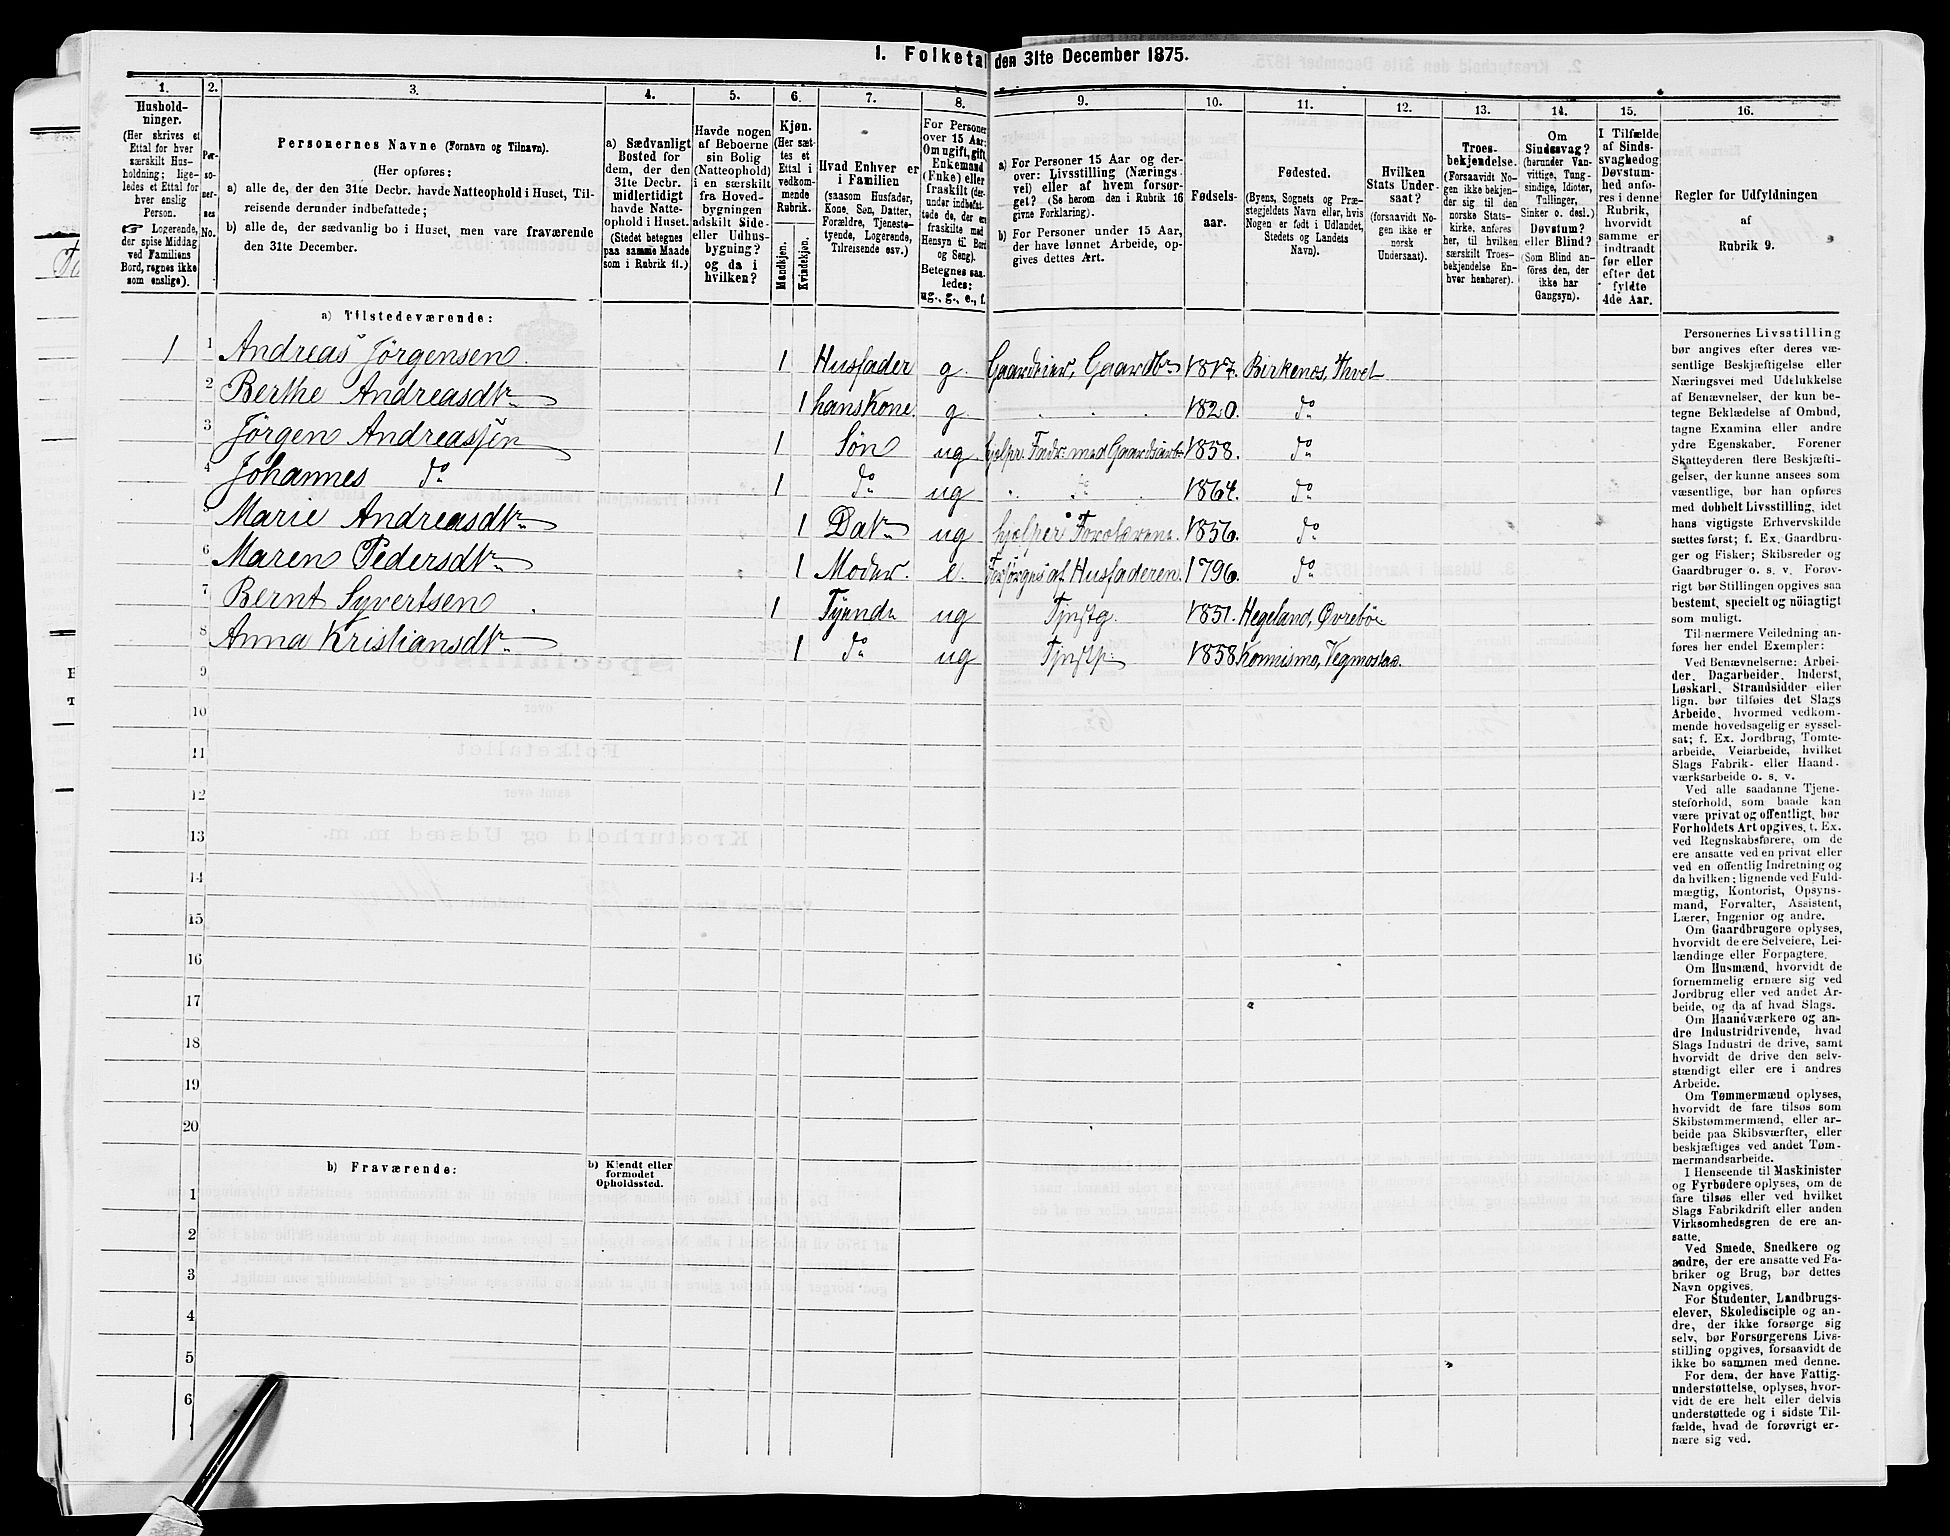 I. Folketal den 31te December 1875.
1.
Hushold-
ninger.
(Her skrives et
Ettal for hver
særskilt Hus-
holdning; lige-
ledes et Ettal for
hver enslig
Person.
☞ Logerende,
der spise Middag
ved Familiens
Bord, regnes ikke
som enslige).
2.
Per-
so-
ner-
nes
No.
3.
Personernes Navne (Fornavn og Tilnavn).
(Her opføres:
a) alle de, der den 31te Decbr. havde Natteophold i Huset, Til-
reisende derunder indbefattede;
b) alle de, der sædvanlig bo i Huset, men vare fraværende
den 31te December.
4.
a) Sædvanligt
Bosted for
dem, der den
31te Decbr.
midlertidigt
havde Natte-
ophold i Huset.
(Stedet betegnes
paa samme Maade
som i Rubrik 11.)
5.
Havde nogen
af Beboerne
sin Bolig
(Natteophold)
i en særskilt
fra Hoved-
bygningen
adskilt Side-
eller Udhus-
bygning?
og da i
hvilken?
6.
Kjøn.
(Her sæt-
tes et
Ettal i
vedkom-
mende
Rubrik.
Mandkjøn.
Kvindekjøn.
7.
Hvad Enhver er
i Familien
(saasom Husfader,
Kone, Søn, Datter,
Forældre, Tjeneste-
tyende, Logerende,
Tilreisende osv.)
8.
For Personer
over 15 Aar:
Om ugift, gift,
Enkemand
(Enke) eller
fraskilt (der-
under indbefat-
tede de, der ere
fraskilte med
Hensyn til Bord
og Seng).
Betegnes saa-
ledes:
ug., g., e., f.
9.
a) For Personer 15 Aar og der-
over: Livsstilling (Nærings-
vei) eller af hvem forsør-
get? (Se herom den i Rubrik 16
givne Forklaring).
b) For Personer under 15 Aar,
der have lønnet Arbeide, op-
gives dettes Art.
10.
Fødsels-
aar.
11.
Fødested.
(Byens, Sognets og Præ-
stegjeldets Navn eller, hvis
Nogen er født i Udlandet,
Stedets og Landets
Navn).
12.
Hvilken
Stats Under-
saat?
(forsaavidt No-
gen ikke er
norsk
Undersaat).
13.
Troes-
bekjendelse.
(Forsaavidt No-
gen ikke bekjen-
der sig til den
norske Stats-
kirke, anføres
her, til hvilken
særskilt Troes-
bekjendelse En-
hver henhører).
14.
Om
Sindssvag?
(herunder Van-
vittige, Tung-
sindige, Idioter,
Tullinger,
Sinker o. desl.)
Døvstum?
eller Blind?
(Som Blind an-
føres den, der
ikke har
Gangsyn).
15.
I Tilfælde
af Sinds-
svaghed og
Døvstum-
hed anfø-
res i denne
Rubrik,
hvorvidt
samme er
indtraadt
før eller
efter det
fyldte
4de Aar.
16.
Regler for Udfyldningen
af
Rubrik 9.
a) Tilstedeværende:
1 1 Andreas Jörgensen 1 Husfader g. Gaardeier, Gaardbr 1817. Birkenes, Thvet
2 Berthe Andreasdtr 1 hans Kone. g. 1820. do
3 Jörgen Andreassen 1 Søn ug hjælper Fadr med Gaardsarb 1858. do
4 Johannes do 1 do ug do 1864. do
5 Marie Andreasdtr 1 Datr ug hjælper Forældrene 1856. do
6 Maren Pedersdtr 1 Moder. e. Forsørges af Husfaderen. 1796. do
7 Bernt Syvertsen 1 Tyende ug Tjnstg. 1851. Hegeland, Øvrebö
8 Anna Kristiansdtr 1 do ug Tjnstp: 1858. Konnismo, Vegmostad.
9
10
11
12
13
14
15
16
17
18
19
20
b) Fraværende:
b) Kjendt eller
formodet
Opholdssted.
1
2
3
4
5
6
Personernes Livsstilling
bør angives efter deres væ-
sentlige Beskjæftigelse eller
Næringsvei med Udelukkelse
af Benævnelser, der kun be-
tegne Beklædelse af Ombud,
tagne Examina eller andre
ydre Egenskaber. Forener
Skatteyderen flere Beskjæfti-
gelser, der kunne ansees som
væsentlige, bør han opføres
med dobbelt Livsstilling, idet
hans vigtigste Erhvervskilde
sættes først; f. Ex. Gaardbru-
ger og Fisker; Skibsreder og
Gaardbruger o. s. v. Forøv-
rigt bør Stillingen opgives saa
bestemt, specielt og nöiagtigt
som muligt.
Til nærmere Veiledning an-
føres her endel Exempler:
Ved Benævnelserne: Arbei-
der, Dagarbeider, Inderst,
Løskarl, Strandsidder eller
lign. bør tilføies det Slags
Arbeide, hvormed vedkom-
mende hovedsagelig er syssel-
sat; f. Ex. Jordbrug, Tomte-
arbeide, Veiarbeide, hvilket
Slags Fabrik- eller Haand-
værksarbeide o. s. v.
Ved alle saadanne Tjene-
steforhold, som baade kan
være privat og offentligt, bør
Forholdets Art opgives, t. Ex.
ved Regnskabsførere, om de
ere ansatte ved en privat eller
ved en offentlig Indretning og
da hvilken; lignende ved Fuld-
mægtig, Kontorist, Opsyns-
mand, Forvalter, Assistent,
Lærer, Ingeniør og andre.
Om Gaardbrugere oplyses,
hvorvidt de ere Selveiere, Lei-
lændinge eller Forpagtere.
Om Husmænd, hvorvidt de
fornemmelig ernære sig ved
Jordbrug eller ved andet Ar-
beide, og da af hvad Slags.
Om Haandværkere og an-
dre Industridrivende, hvad
Slags Industri de drive, samt
hvorvidt de drive den selv-
stændigt eller ere i andres
Arbeide.
Om Tømmermænd oplyses,
hvorvidt de fare tilsøs som
Skibstømmermænd, eller ar-
beide paa Skibsværfter, eller
beskjæftiges ved andet Tøm-
mermandsarbeide.
I Henseende til Maskinister
og Fyrbødere oplyses, om de
fare tilsøs eller ved hvilket
Slags Fabrikdrift eller anden
Virksomhedsgren de ere an-
satte.
Ved Smede, Snedkere og
andre, der ere ansatte ved Fa-
briker og Brug, bør dettes
Navn opgives.
For Studenter, Landbrugs-
elever, Skoledisciple og an-
dre, der ikke forsørge sig
selv, bør Forsørgerens Livs-
stilling opgives, forsaavidt de
ikke bo sammen med denne.
For dem, der have Fattig-
understøttelse, oplyses, hvor-
vidt de ere helt eller delvis
understøttede og i sidste Til-
fælde, hvad de forøvrigt er-
nære sig ved.